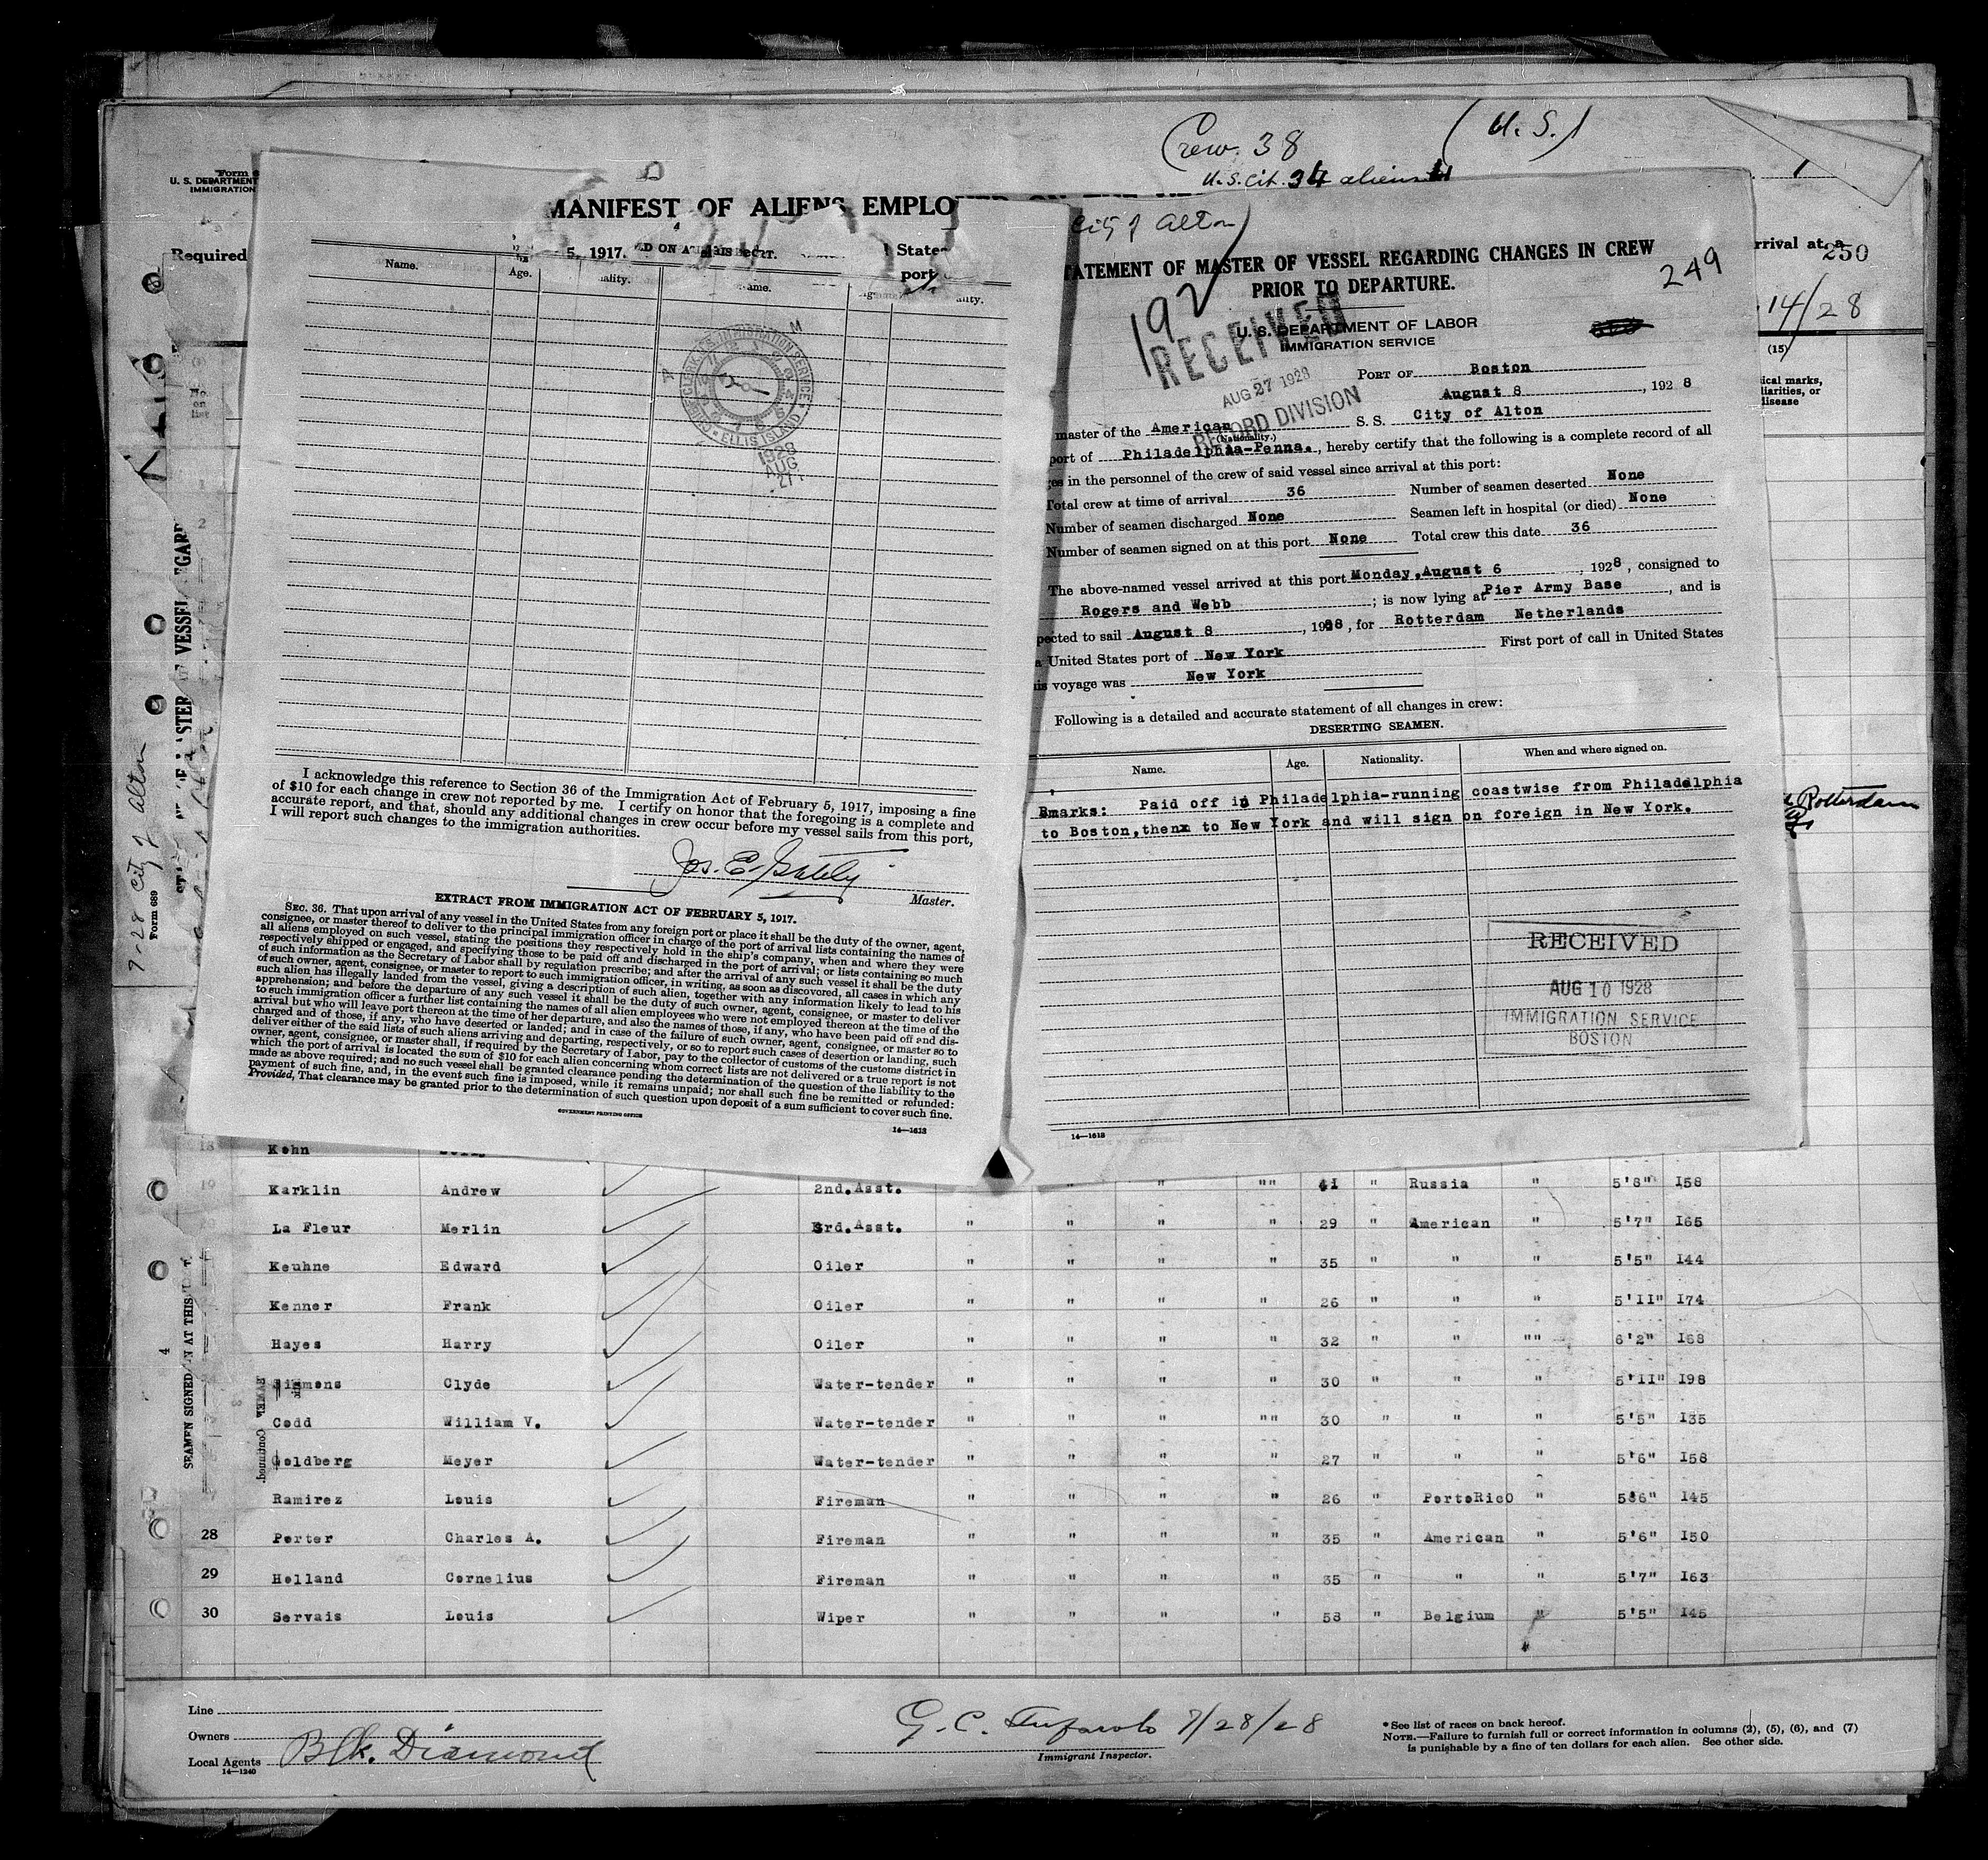 Crew. 38
(U. S.)
U.S. Cit. 34 aliens 4
Form 6
U. S. DEPARTMENT
IMMIGRATION
MANIFEST OF ALIENS EMPLO
Required
5, 1917.
State
port
rrival at a
250
14/28
(15)
ical marks,
liarities, or
disease
No.
on
list
1
2
Name.
Age.
ality.
ame.
ality.
CHIEF CLERK U.S. IMMIGRATION SERVICE
ELLIS ISLAND
A M
1928
AUG
I acknowledge this reference to Section 36 of the Immigration Act of February 5, 1917, imposing a fine
of $10 for each change in crew not reported by me. I certify on honor that the foregoing is a complete and
accurate report, and that, should any additional changes in crew occur before my vessel sails from this port,
I will report such changes to the immigration authorities.
Jos. E. Gately
Master.
EXTRACT FROM IMMIGRATION ACT OF FEBRUARY 5, 1917.
SEC. 36. That upon arrival of any vessel in the United States from any foreign port or place it shall be the duty of the owner, agent,
consignee, or master thereof to deliver to the principal immigration officer in charge of the port of arrival lists containing the names of
all aliens employed on such vessel, stating the positions they respectively hold in the ship's company, when and where they were
respectively shipped or engaged, and specifying those to be paid off and discharged in the port of arrival; or lists containing so much
of such information as the Secretary of Labor shall by regulation prescribe; and after the arrival of any such vessel it shall be the duty
of such owner, agent, consignee, or master to report to such immigration officer, in writing, as soon as discovored, all cases in which any
such alien has illegally landed from the vessel, giving a description of such alien, together with any information likely to lead to his
apprehension; and before the departure of any such vessel it shall be the duty of such owner, agent, consignee, or master to deliver
to such immigration officer a further list containing the names of all alien employees who were not employed thereon at the time of the
arrival but who will leave port thereon at the time of her departure, and also the names of those, if any, who have been paid off and dis-
charged and of those, if any, who have deserted or landed; and in case of the failure of such owner, agent, consignee, or master so to
deliver either of the said lists of such aliens arriving and departing, respectively, or so to report such cases of desertion or landing, such
owner, agent, consignee, or master shall, if required by the Secretary of Labor, pay to the collector of customs of the customs district in
which the port of arrival is located the sum of $10 for each alien concerning whom correct lists are not delivered or a true report is not
made as above required; and no such vessel shall be granted clearance pending the determination of the question of the liability to the
payment of such fine, and, in the event such fine is imposed, while it remains unpaid; nor shall such fine be remitted or refunded:
Provided, That clearance may be granted prior to the determination of such question upon deposit of a sum sufficient to cover such fine.
GOVERNMENT PRINTING OFFICE
14—1613
City of Alton
TATEMENT OF MASTER OF VESSEL REGARDING CHANGES IN CREW
PRIOR TO DEPARTURE.
249
192
U. S. DEPARTMENT OF LABOR
IMMIGRATION SERVICE
RECEIVED
AUG 27 1928
RECORD DIVISION
PORT OF Boston
August 8, 1928
master of the American S. S. City of Alton
(Nationality.)
port of Philadelphia-Penna., hereby certify that the following is a complete record of all
ges in the personnel of the crew of said vessel since arrival at this port:
Total crew at time of arrival 36 Number of seamen deserted None
Number of seamen discharged None Seamen left in hospital (or died) None
Number of seamen signed on at this port None Total crew this date 36
The above-named vessel arrived at this port Monday, August 6, 1928, consigned to
Rogers and Webb; is now lying at Pier Army Base, and is
pected to sail August 8, 1928, for Rotterdam Netherlands
a United States port of New York First port of call in United States
is voyage was New York
Following is a detailed and accurate statement of all changes in crew:
DESERTING SEAMEN.
Name. Age. Nationality. When and where signed on.
Emarks: Paid off in Philadelphia-running coastwise from Philadelphia
to Boston, then to New York and will sign on foreign in New York.
RECEIVED
AUG 10 1928
IMMIGRATION SERVICE
BOSTON
14—1613
Rotterdam
7-28 City of Alton
Form 689
SEAMEN SIGNED ON AT THIS
4
Continued.
18 Kohn
19 Karklin Andrew 2nd.Asst. " " "" 41 " Russia " 5'8" I58
20 La Fleur Merlin 3rd.Asst. " " " " 29 " American " 5'7" I65
Keuhne Edward Oiler " " " " 35 " " " 5'5" I44
Kenner Frank Oiler " " " " 26 " " " 5'II" I74
Hayes Harry Oiler " " " " 32 " " "" 6'2" I68
Simmons Clyde Water-tender " " " " 30 " " " 5'II" I98
Codd William V. Water-tender " " " "" 30 " " " 5'5" I35
Goldberg Meyer Water-tender " " " " 27 " " " 5'6" I58
Ramirez Louis Fireman " " " " 26 " PortoRicO " 5'6" I45
28 Porter Charles A. Fireman " " " " 35 " American " 5'6" I50
29 Holland Cornelius Fireman " " " " 35 " " " 5'7" I63
30 Servais Louis Wiper " " " " 58 " Belgium " 5'5" I45
Line
Owners
Local Agents Blk. Diamond
14—1240
G. C. 7/28/28
Immigrant Inspector.
* See list of races on back hereof.
NOTE.—Failure to furnish full or correct information in columns (2), (5), (6), and (7)
is punishable by a fine of ten dollars for each alien. See other side.